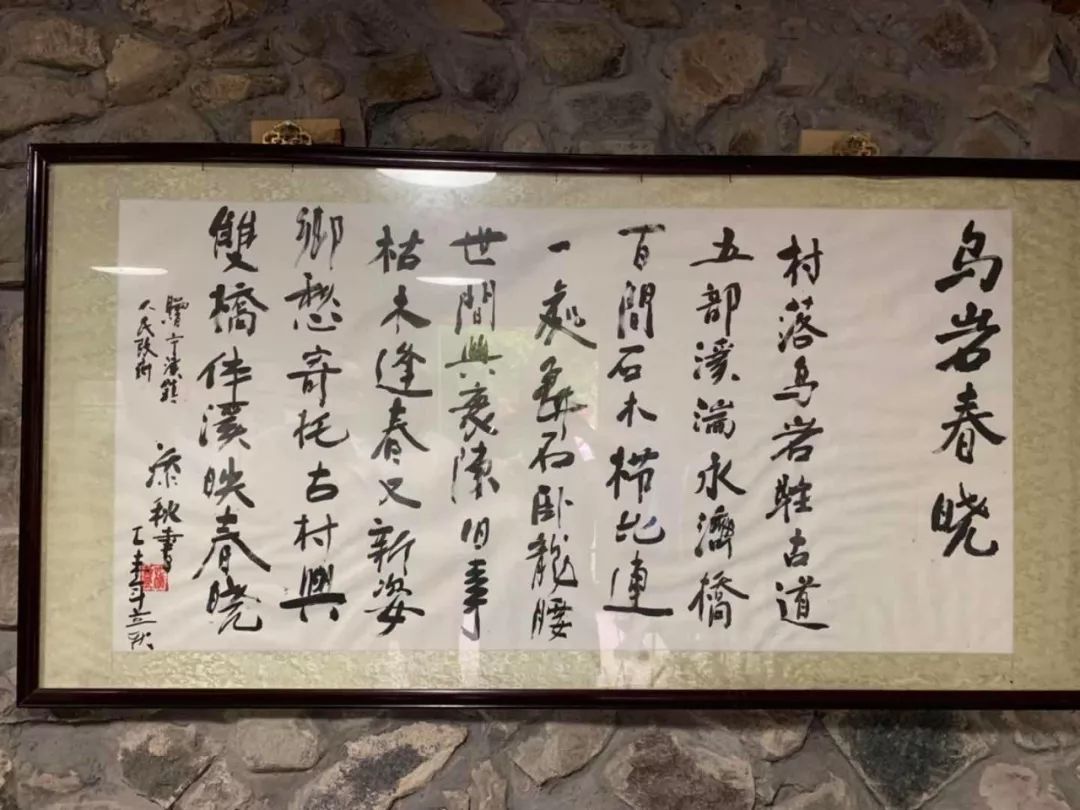 乌岩春晓
村落乌岩駐古道
五部溪湍永濟橋
百間石木栉比連
一處石卧龍腰
世間興衰陳旧事
枯木逢春又新姿
鄉愁寄托古村興
雙橋伴溪映春晓
贈宁溪鎮
人民政府
秋書
乙未年立秋